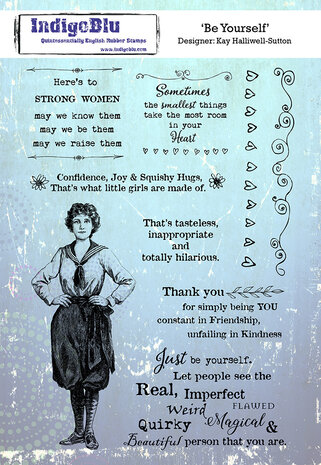 IndigoBlu
Quintessentially English Rubber Stamps
www.indigoblu.com
'Be Yourself'
Designer: Kay Halliwell-Sutton
Here's to
STRONG WOMEN
may we know them
may we be them
may we raise them
Sometimes
the smallest things
take the most room
in your
Heart
Confidence, Joy & Squishy Hugs,
That's what little girls are made of.
That's tasteless,
inappropriate
and
totally hilarious.
Thank you
for simply being YOU
constant in Friendship,
unfailing in Kindness
Just be yourself.
Let people see the
Real, Imperfect
Weird FLAWED
Quirky Magical &
Beautiful person that you are.